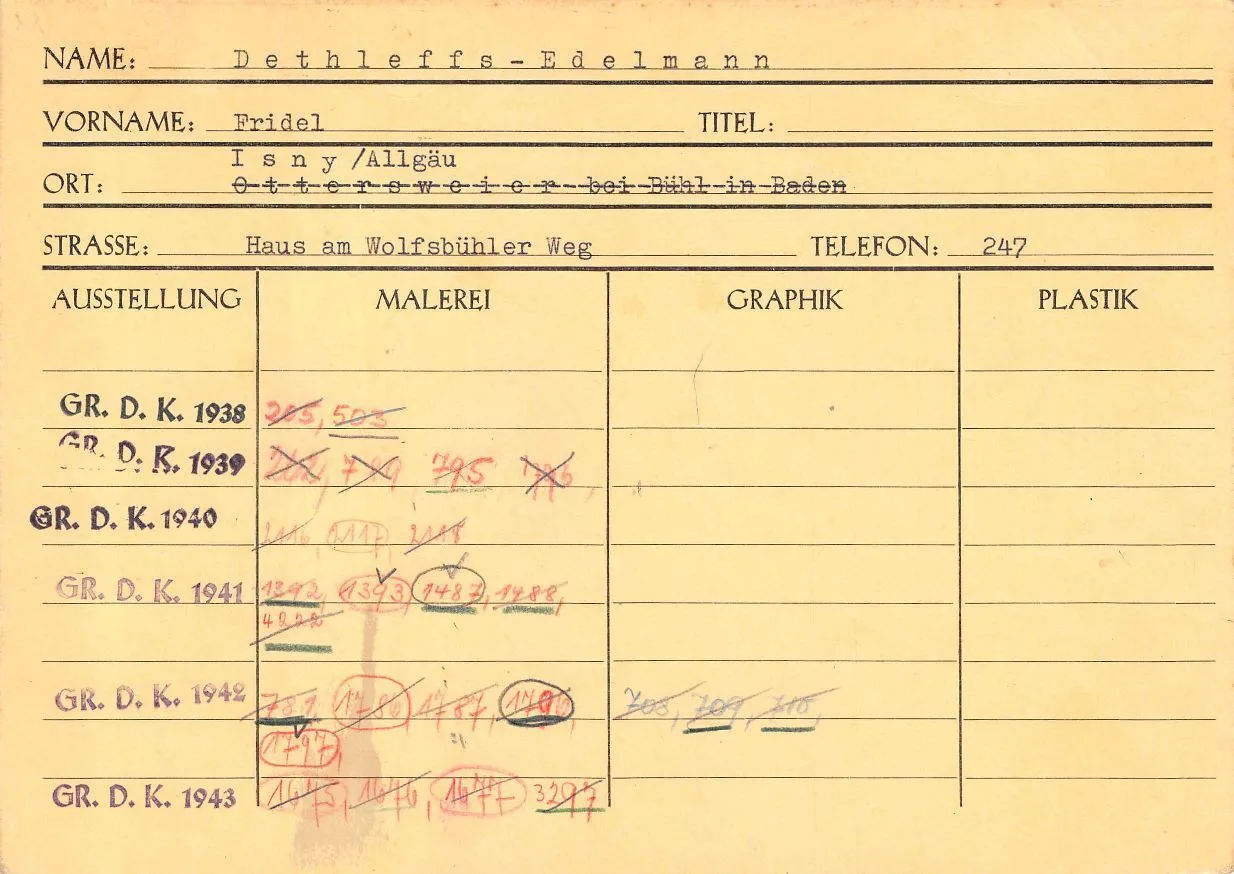 NAME: Dethleffs-Edelmann
VORNAME: Fridel TITEL:
Isny/Allgäu
ORT: Ottersweier bei Bühl in Baden
STRASSE: Haus am Wolfsbühler Weg TELEFON: 247
AUSSTELLUNG MALEREI GRAPHIK PLASTIK
GR. D. K. 1938 205, 503
GR. D. K. 1939 262, 789 795 796,
GR. D. K. 1940 2116, 2117, 2118
GR. D. K. 1941 1392, 1393, 1487, 1488,
4222
GR. D. K. 1942 781 1786 1787, 1796, 708, 709, 710,
1797,
GR. D. K. 1943 1675, 1676, 1677 3297